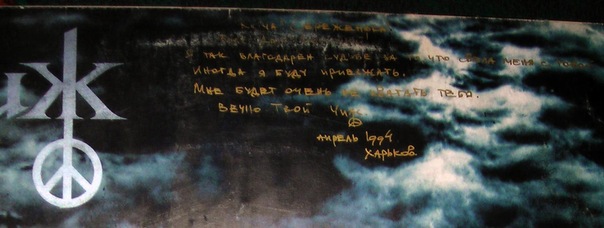 ИЖ
Я ТАК БЛАГОДАРЕН СУДЬБЕ ЗА ТО ЧТО СВЕЛА МЕНЯ С
ИНОГДА Я БУДУ ПРИЕЗЖАТЬ.
МНЕ БУДЕТ ОЧЕНЬ НЕ ХВАТАТЬ ТЕБЯ.
ВЕЧНО ТВОЙ ЧИЖ
АПРЕЛЬ 1994
ХАРЬКОВ.